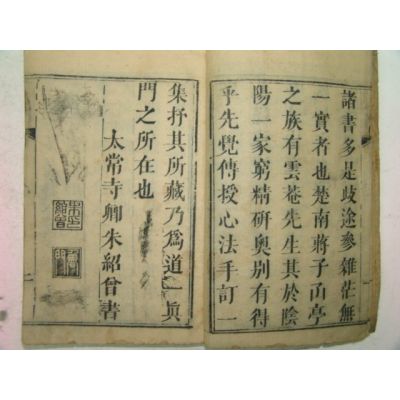 諸書多是歧途參雜茫無
一實者也楚南蔣子卨亭
之族有雲菴先生其於陰
陽一家窮精硏奧別有得
乎先覺傳授心法手訂一
集抒其所藏乃爲道一眞
門之所在也
太常寺卿朱紹曾書